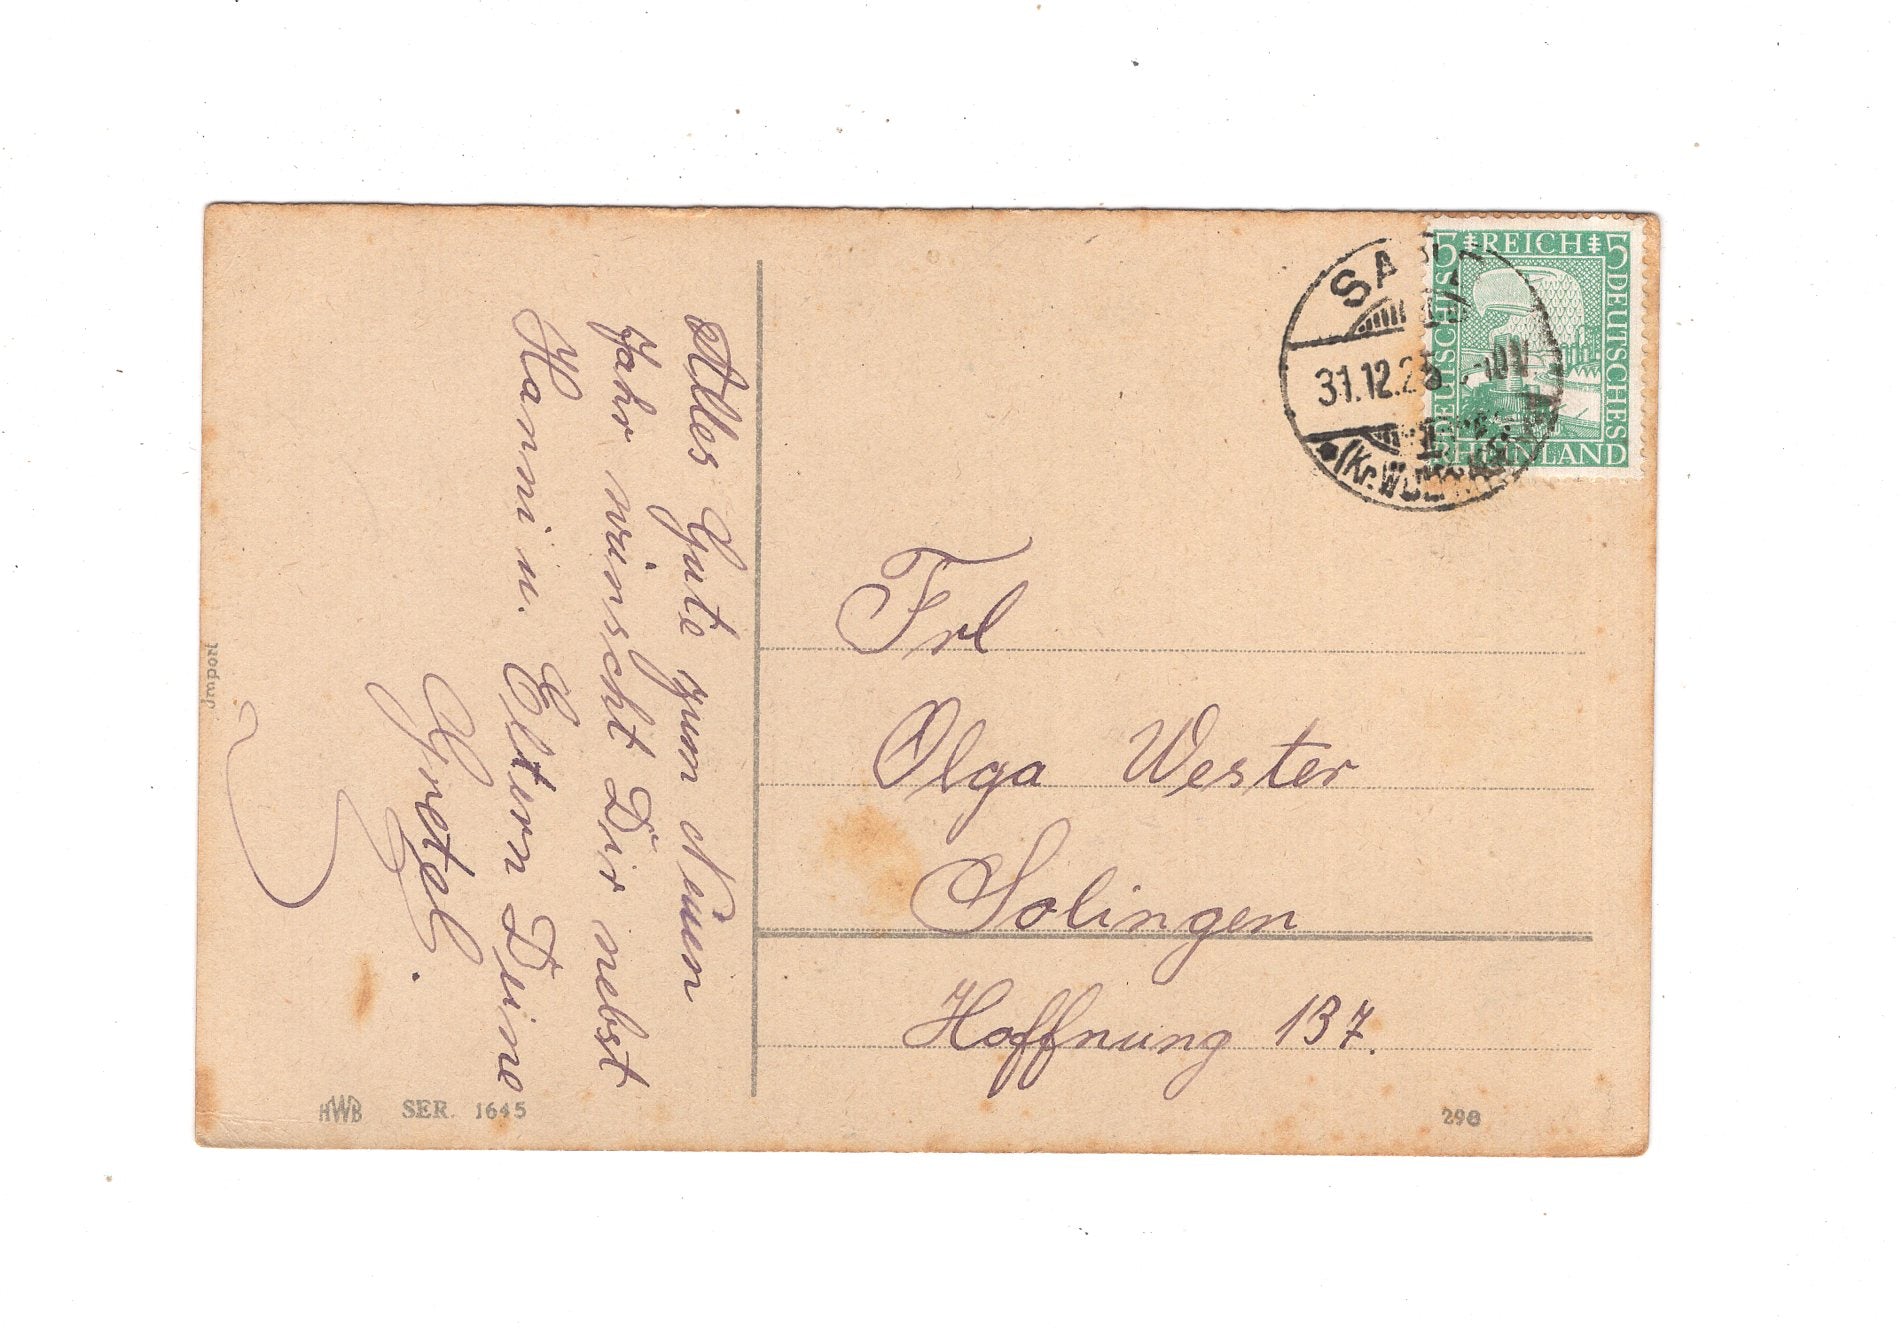 Alles Gute zum Neuen
Jahr wünscht Dir nebst
Hanni u. Eltern Deine
Gretel.
Import
HWB SER. 1645
5 REICH 5
DEUTSCHES
DEUTSCHES
RHEINLAND
31.12.25
(Kr.
Frl
Olga Wester
Solingen
Hoffnung 137.
298